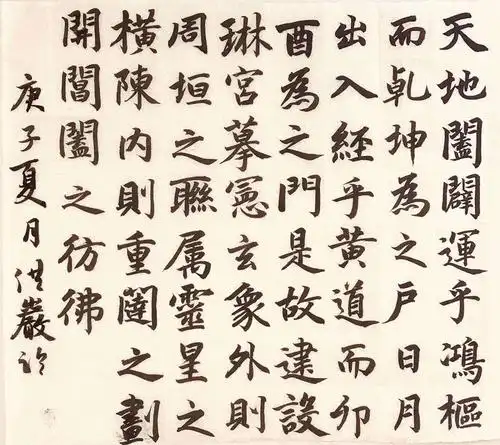 天地闔闢運乎鴻樞
而乹坤為之戶日月
出入經乎黃道而卯
酉為之門是故建設
琳宮摹憲玄象外則
周垣之聯属靈星之
橫陳内則重闥之劃
開閶闔之彷彿
庚子夏月洪巖